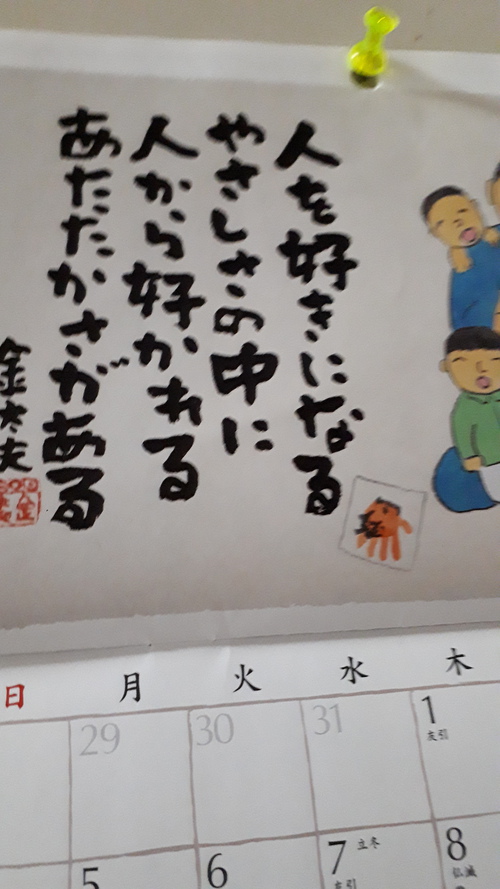 人を好きになる
やさしさの中に
人から好かれる
あたたかさがある
金太夫
日 月 火 水 木
29 30 31 1
友引
5 6 7 8
立冬
友引 仏滅